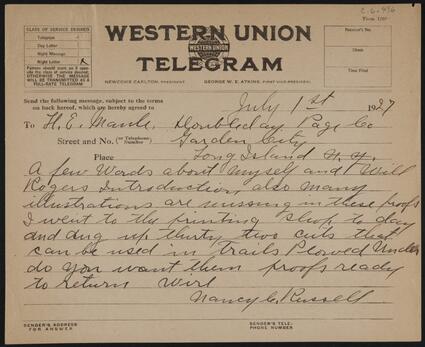 C.6.436
Form 1207
CLASS OF SERVICE DESIRED
Telegram
Day Letter
Night Message
Night Letter X
Patrons should mark an X opposite the class of service desired;
OTHERWISE THE MESSAGE
WILL BE TRANSMITTED AS A
FULL-RATE TELEGRAM
WESTERN UNION
WESTERN UNION
TELEGRAM
NEWCOMB CARLTON, PRESIDENT GEORGE W. E. ATKINS, FIRST VICE-PRESIDENT
Receiver's No.
Check
Time Filed
Send the following message, subject to the terms
on back hereof, which are hereby agreed to
July 1st 1927
To H. E. Maule Doubleday Page Co
Street and No. (or Telephone Number) Garden City
Place Long Island N.Y.
A few Words about myself and Will
Rogers Introduction also many
illustrations are missing in these proofs
I went to the printing shop to day
and dug up thirty two cuts that
can be used in Trails Plowed Under
do you want them proofs ready
to return Wire
Nancy C. Russell
SENDER'S ADDRESS
FOR ANSWER
SENDER'S TELE-
PHONE NUMBER